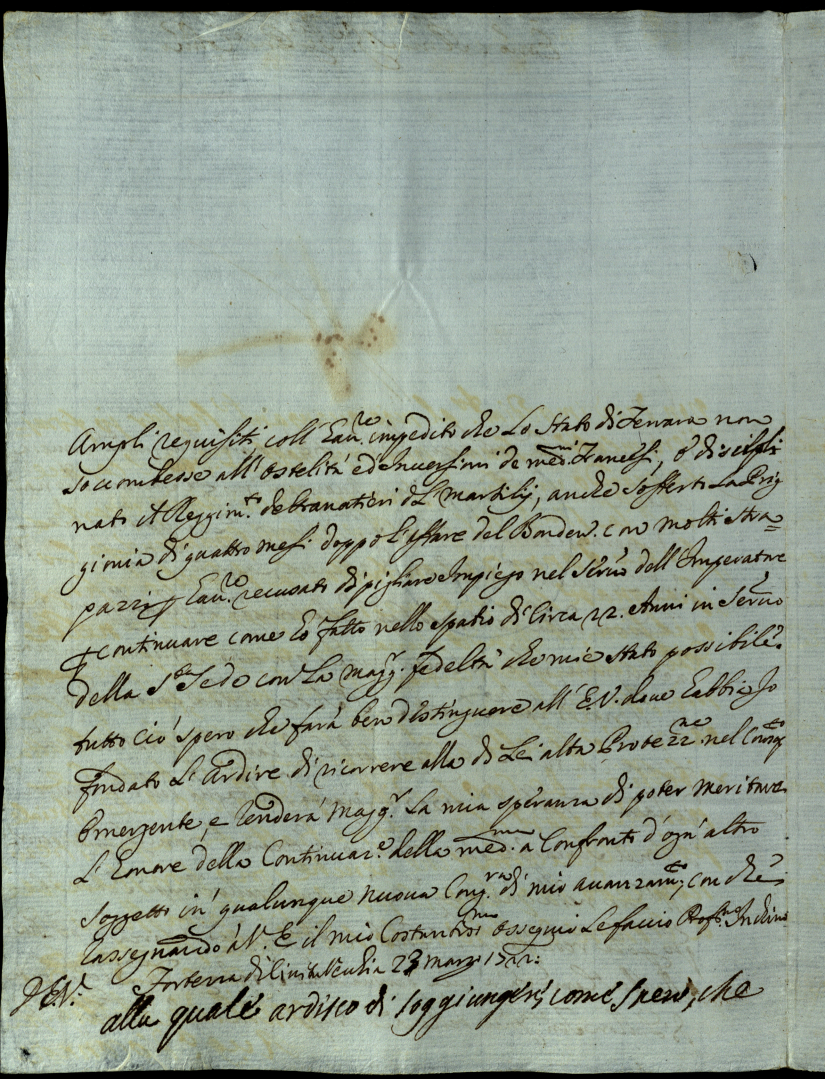 Ampli requisiti coll' hau.re impedito che Lo Stato di Ferrara non
soccombesse all' ostelità ed Inversioni de med.mi Franessi, e discipli
nato il Reggim.to de Granatieri del Marsilij, anche sofferto La Prig
gionia di quattro mesi doppo l'affare del Bonden. con molti stra=
pazzi, hau.re recusato di pigliare Impiego nel serv.o dell' Imperatore
continuare come hò fatto nello spatio di Circa 22. Anni in Servio
della S.ta Sede con La magg.r fedeltà che mi è stato possibile.
tutto ciò spero che farà ben distinguere all' E.V. doue habbia Io
fondato L' Ardire di ricorrere alla di Lei alta Protez.ne nel
Emergente, e renderà magg.r La mia speranza di poter meritare
L' honore della Continuaz.e della med.ma a Confronti d'ogn' altro
soggetto in qualunque nuoua Cong.ra di mio auanzam.to, con che
rassegnando à V. E. il mio Costantiss.mo ossequio Le faccio Prof.mo Inchino
Forterza di Civita Vechia 23 marzo 1722:
D E.V.
alla quale ardisco di soggiungere, come spero, che